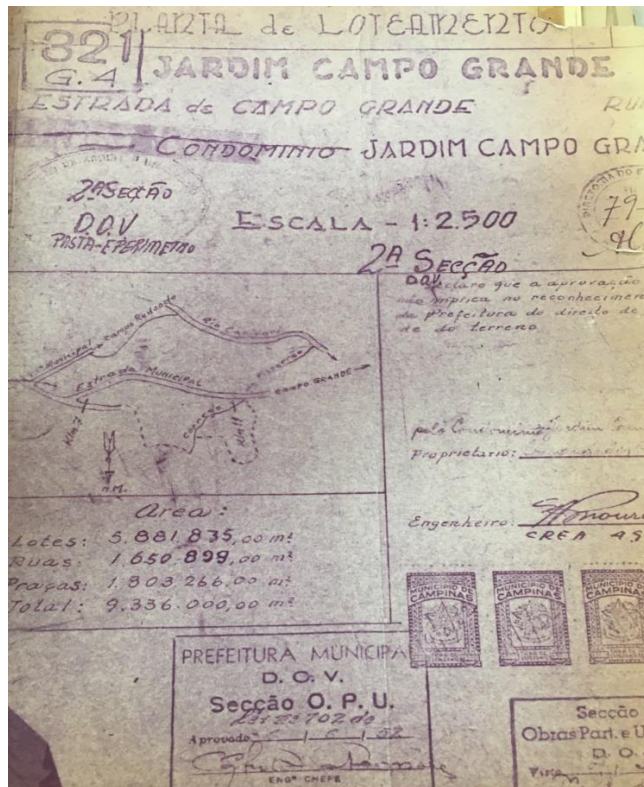 PLANTA de LOTEAMENTO
821
G.4
JARDIM CAMPO GRANDE
ESTRADA de CAMPO GRANDE RU
CONDOMINIO JARDIM CAMPO GRA
2ª SECÇÃO
D.O.V
PASTA-EPERIMETRO
ESCALA - 1:2.500
79-
2ª SECÇÃO
DOV
Declaro que a aprovação
não implica no reconhecimen
da Prefeitura do direito de
de do terreno
Municipal Campo Redondo
Rio Capivari
Estrada Municipal
CAMPO GRANDE
Km 7
Km 11
N.M.
pelo Condominio Jardim
Proprietario:
Engenheiro:
CREA 45
Area:
Lotes: 5.881.835,00 m²
Ruas: 1.650.899,00 m²
Praças: 1.803.266,00 m²
Total: 9.336.000,00 m²
MUNICIPIO DE CAMPINAS
MUNICIPIO DE CAMPINAS
MUNICIPIO DE CAMPINAS
PREFEITURA MUNICIPA
D. O. V.
Secção O. P. U.
702 de
Aprovado
ENGº CHEFE
Secção
Obras Part. e U
D. O.
Visto